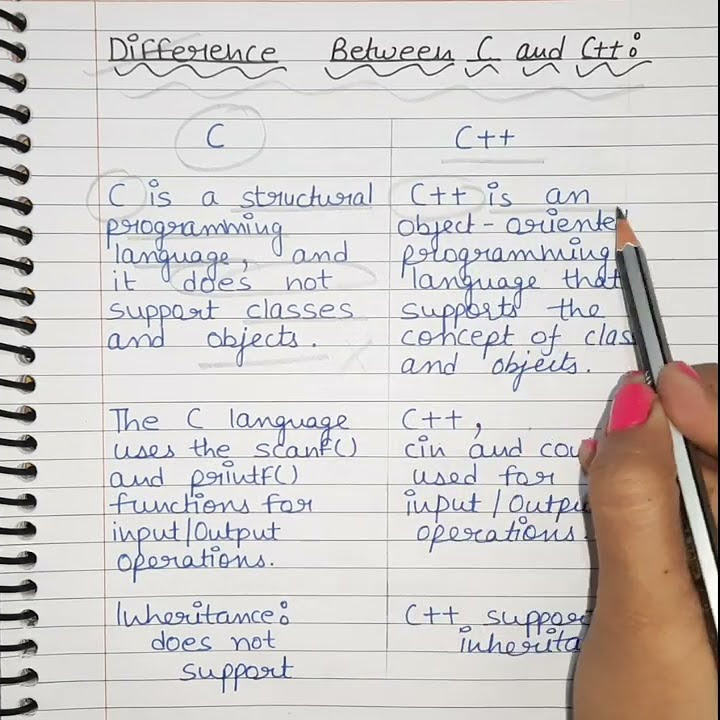 Difference Between C and C++:
C
C++
C is a structural
programming
language, and
it does not
support classes
and objects.
C++ is an
object-oriente
programming
language that
supports the
concept of clas
and objects.
The C language
uses the scanf()
and printf()
functions for
input/Output
operations.
C++,
cin and cou
used for
input/Outpu
operations
Inheritance:
does not
support
C++ suppor
inherita